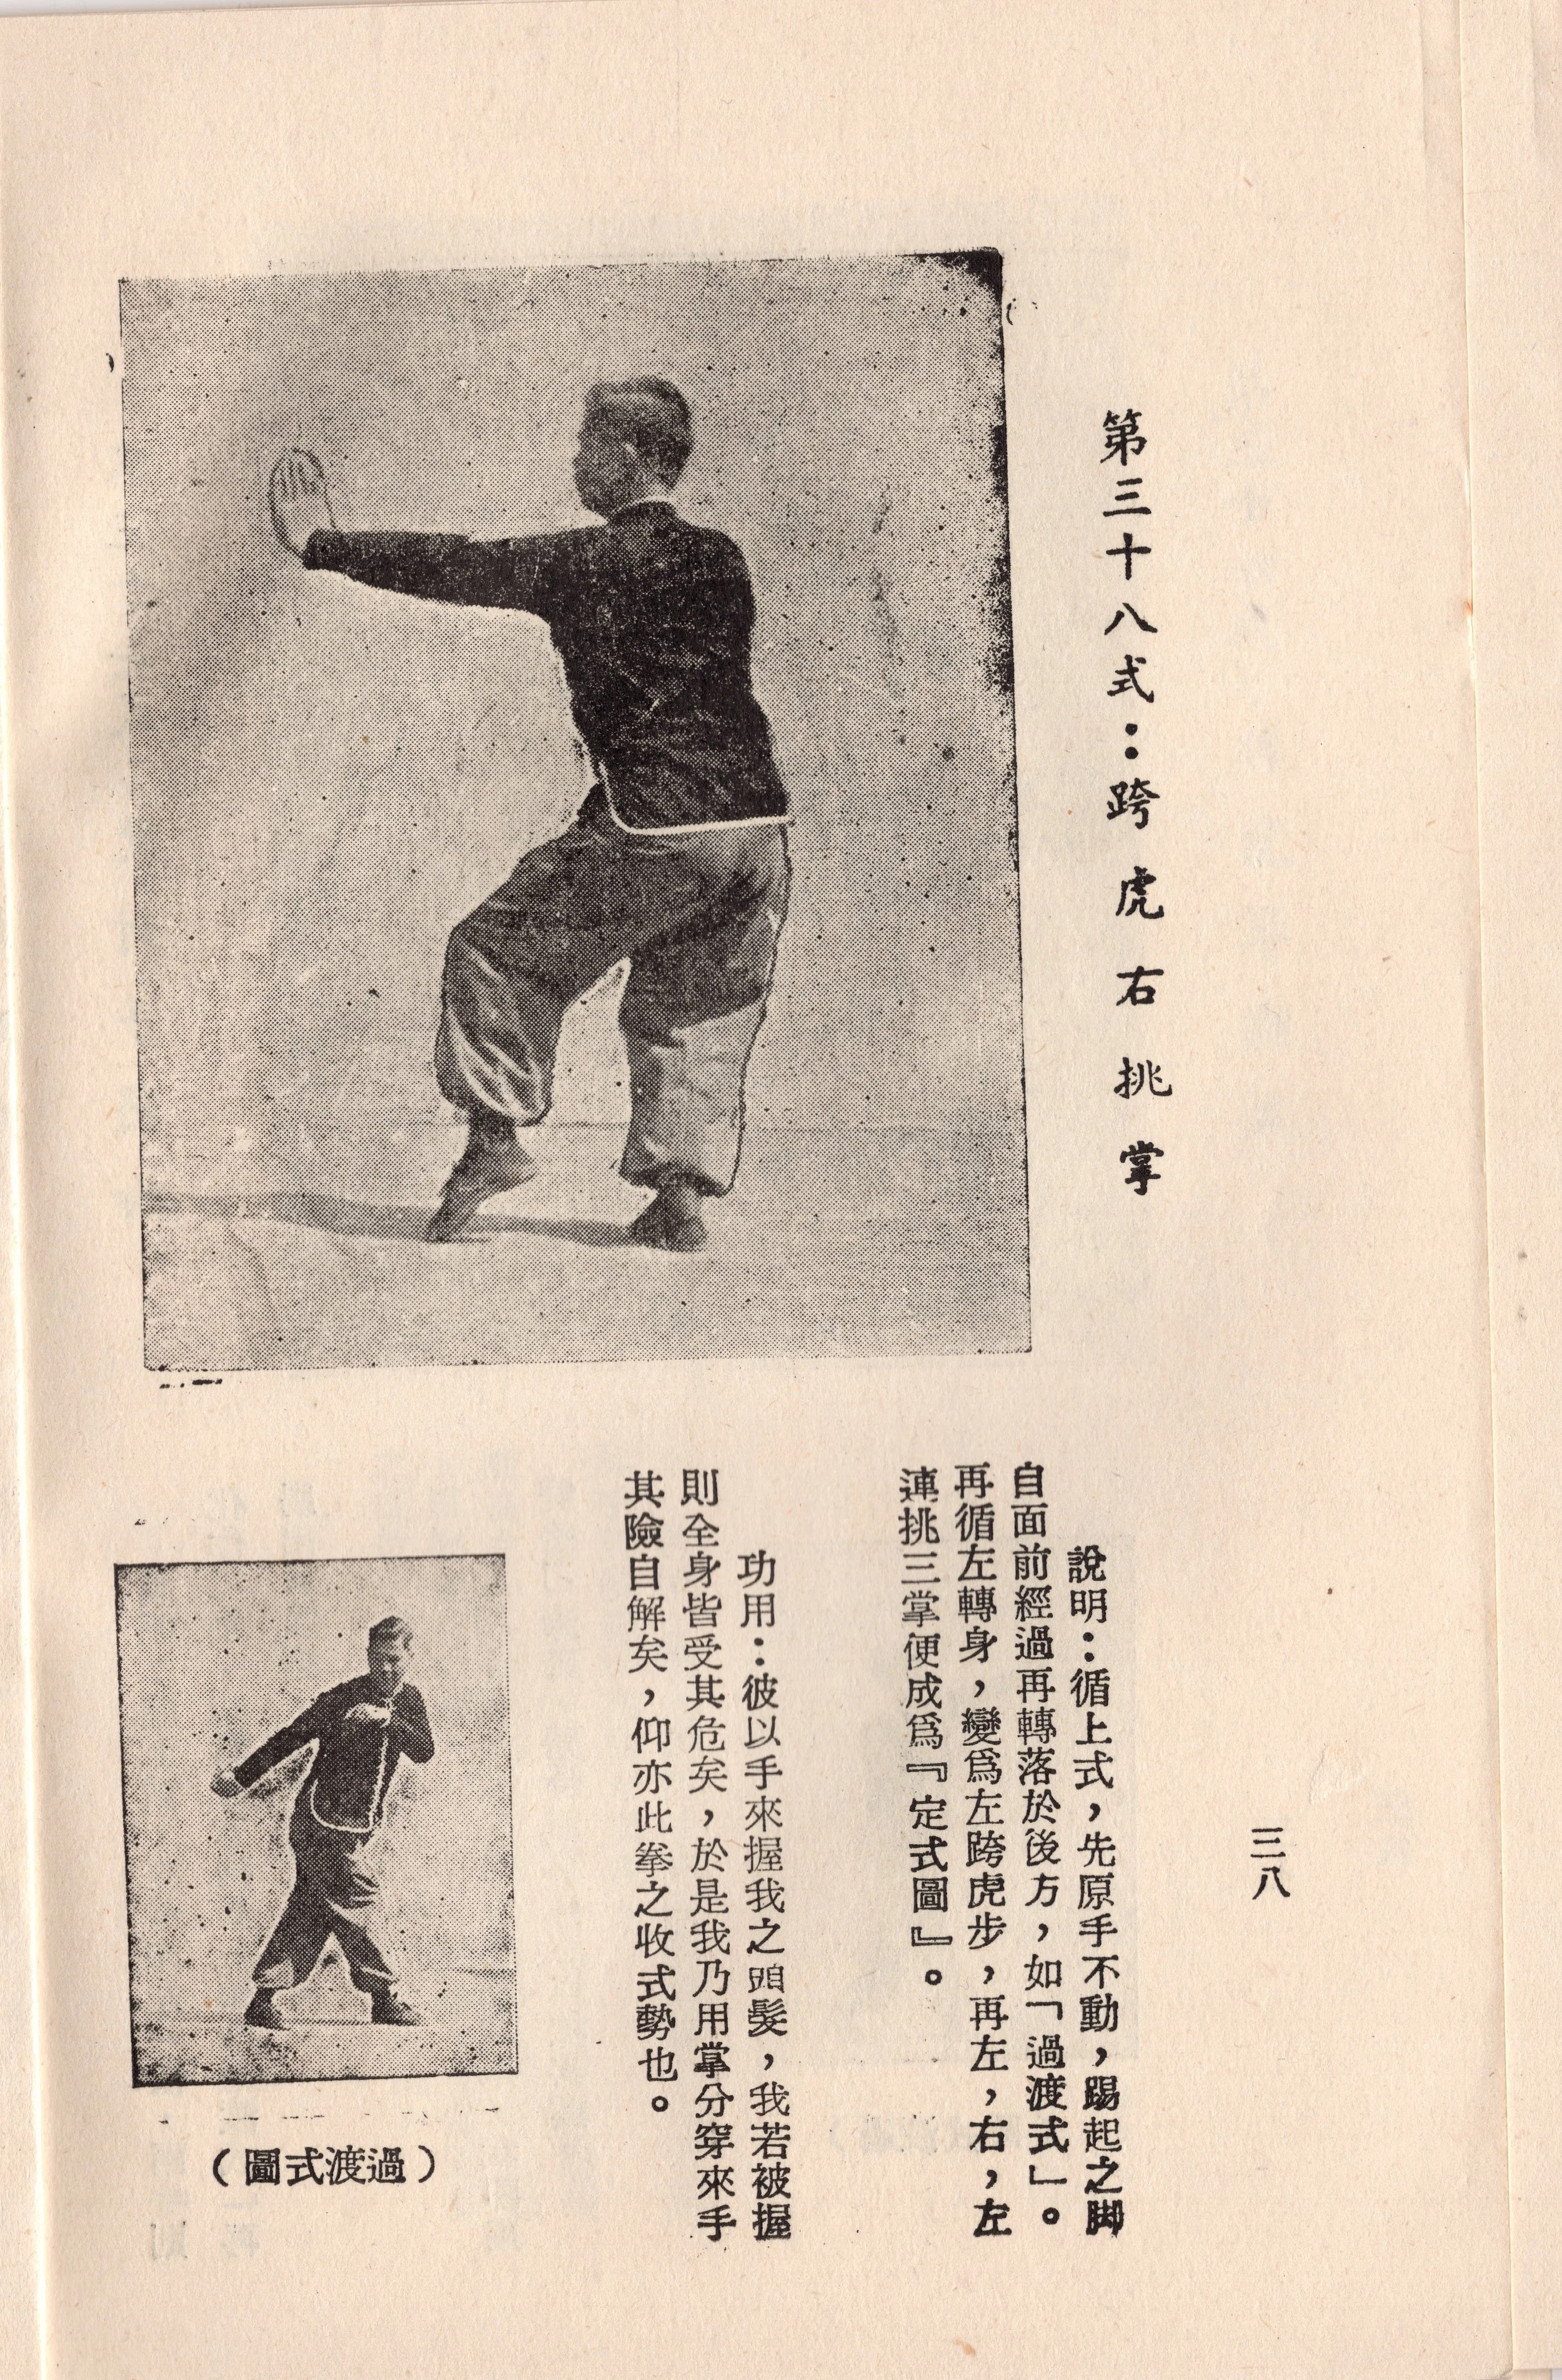 第三十八式：跨虎右挑掌
說明：循上式，先原手不動，踢起之脚
自面前經過再轉落於後方，如「過渡式」。
再循左轉身，變爲左跨虎步，再左，右，左
連挑三掌便成爲『定式圖』。
功用：彼以手來握我之頭髮，我若被握
則全身皆受其危矣，於是我乃用掌分穿來手
其險自解矣，仰亦此拳之收式勢也。
（圖式渡過）
三八